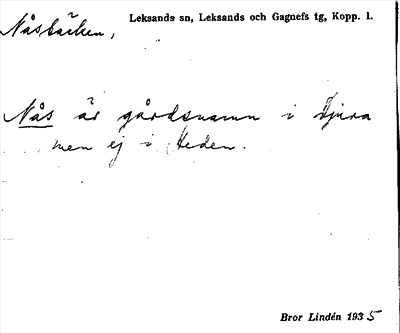 Nåsbäcken,
Leksands sn, Leksands och Gagnefs tg, Kopp. l.
Nås är gårdsnamn i Djura
men ej i Heden.
Bror Lindén 1935